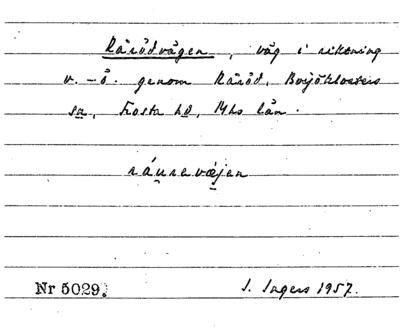 Råröd vägen, väg i riktning
v.–ö. genom Råröd, Bosjöklosters
sn, Frosta hd, Mhs län.
ráurevæjen
Nr 5029.
I. Ingers 1957.